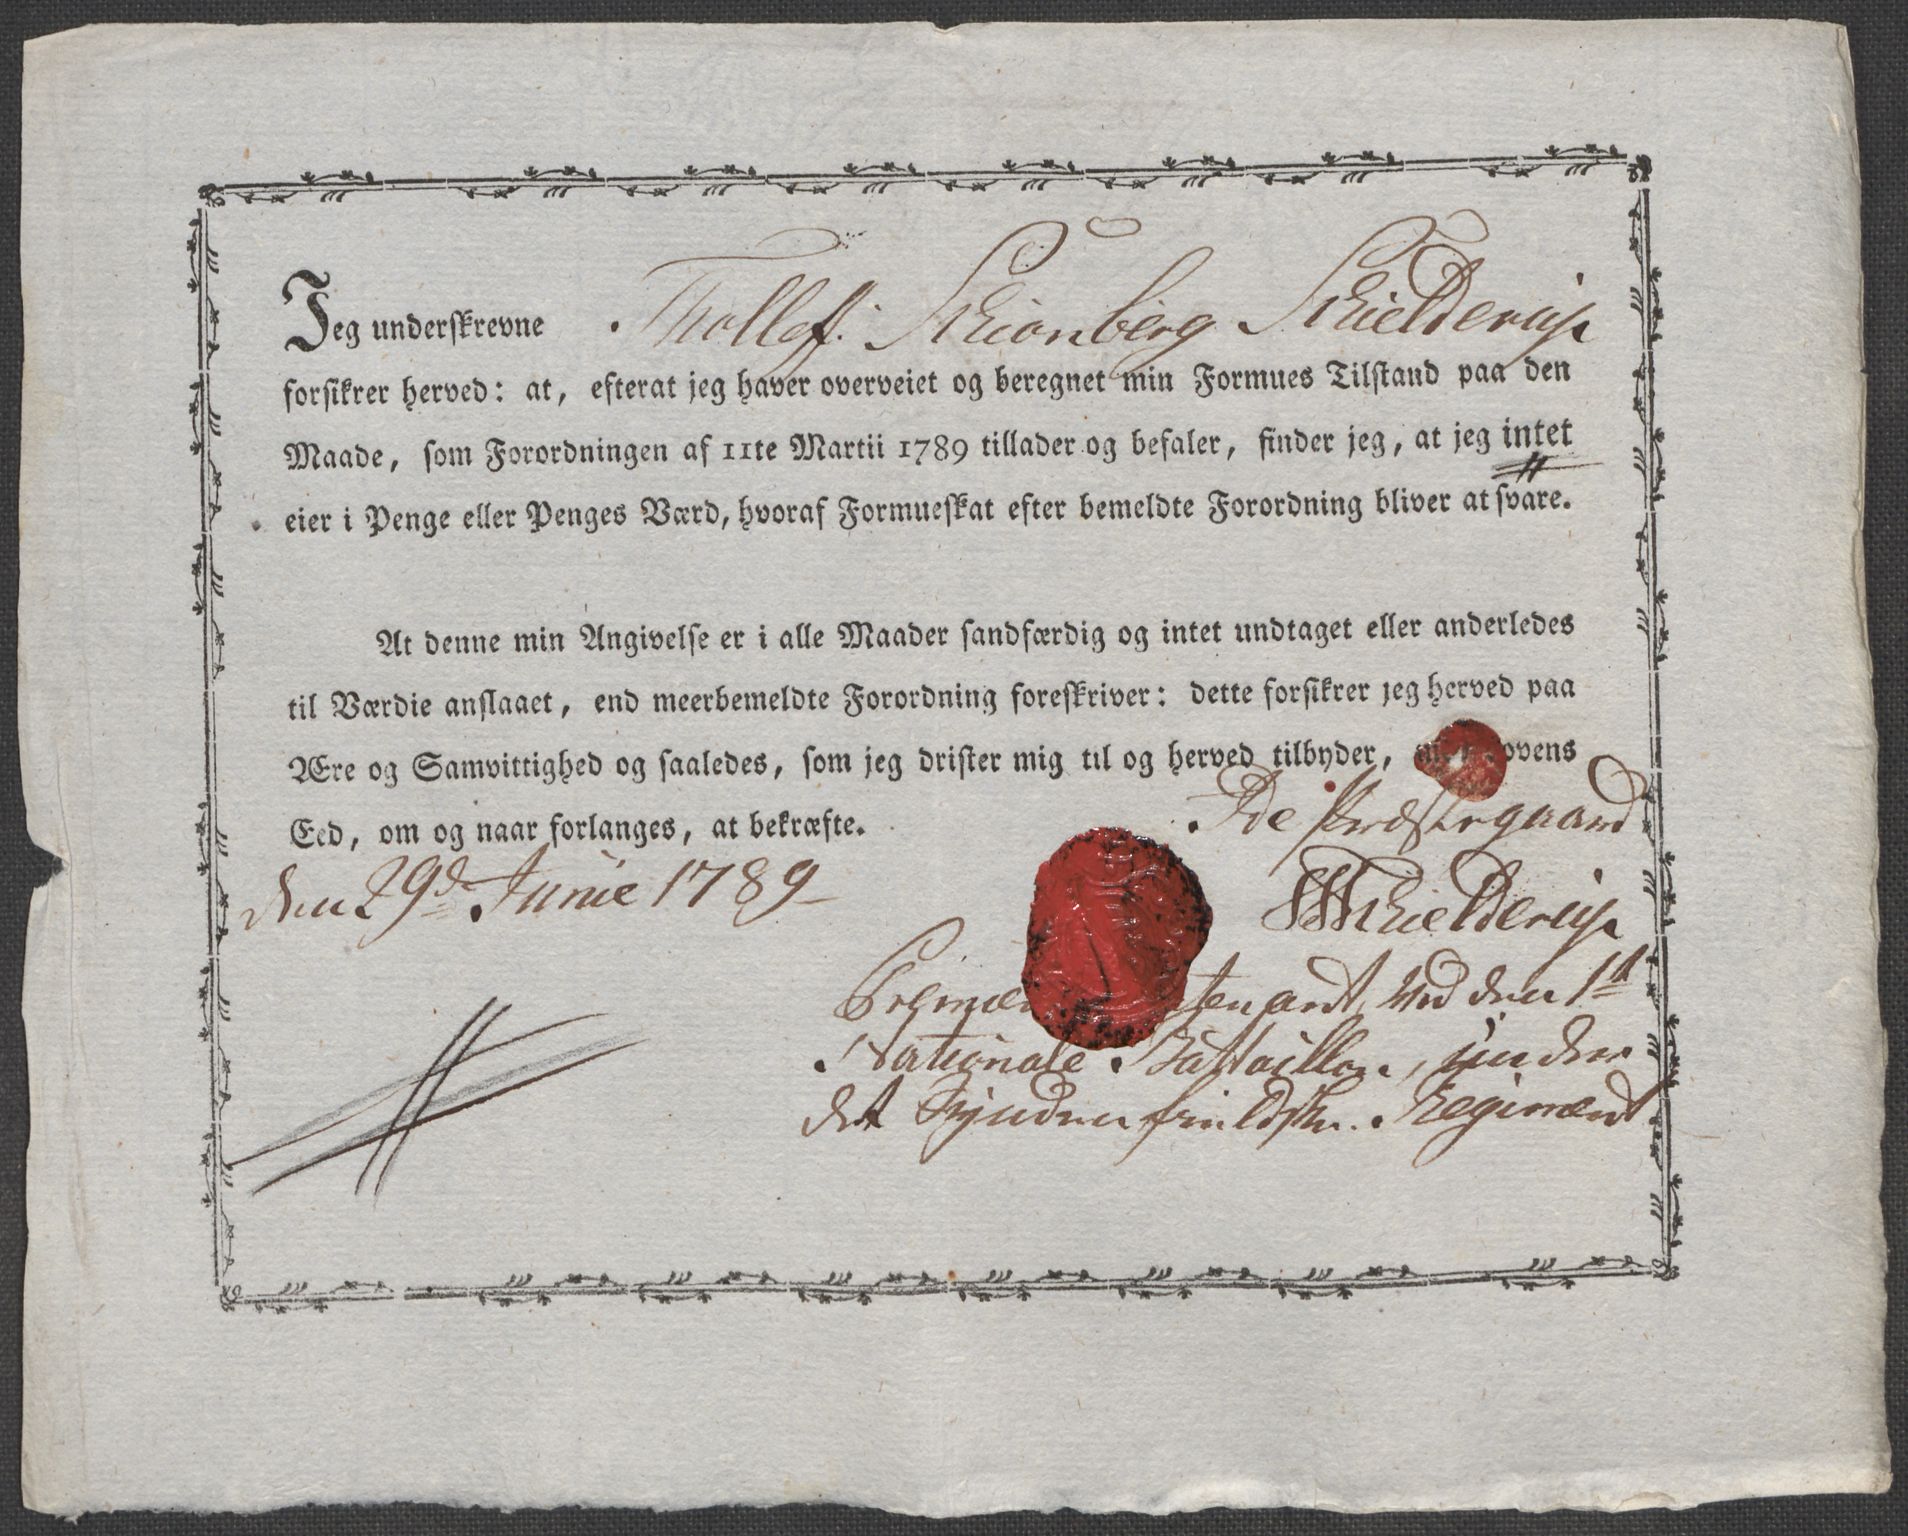 Jeg underskrevne Tholleff: Schionberg Schielderup
forsikrer herved: at, efterat jeg haver overveiet og beregnet min Formues Tilstand paa den
Maade, som Forordningen af 11te Martii 1789 tillader og befaler, finder jeg, at jeg intet
eier i Penge eller Penges Værd, hvoraf Formueskat efter bemeldte Forordning bliver at svare.
At denne min Angivelse er i alle Maader sandfærdig og intet undtaget eller anderledes
til Værdie anslaaet, end meerbemeldte Forordning foreskriver: dette forsikrer jeg herved paa
Ære og Samvittighed og saaledes, som jeg drister mig til og herved tilbyder, med Lovens
Eed, om og naar forlanges, at bekræfte.
Ide Præstegaard
den 29d Junie 1789
TSSchielderup
Premier Lieutenant ved den 1st
Nationale Battaillon, under
det Syndenfieldske Regiment